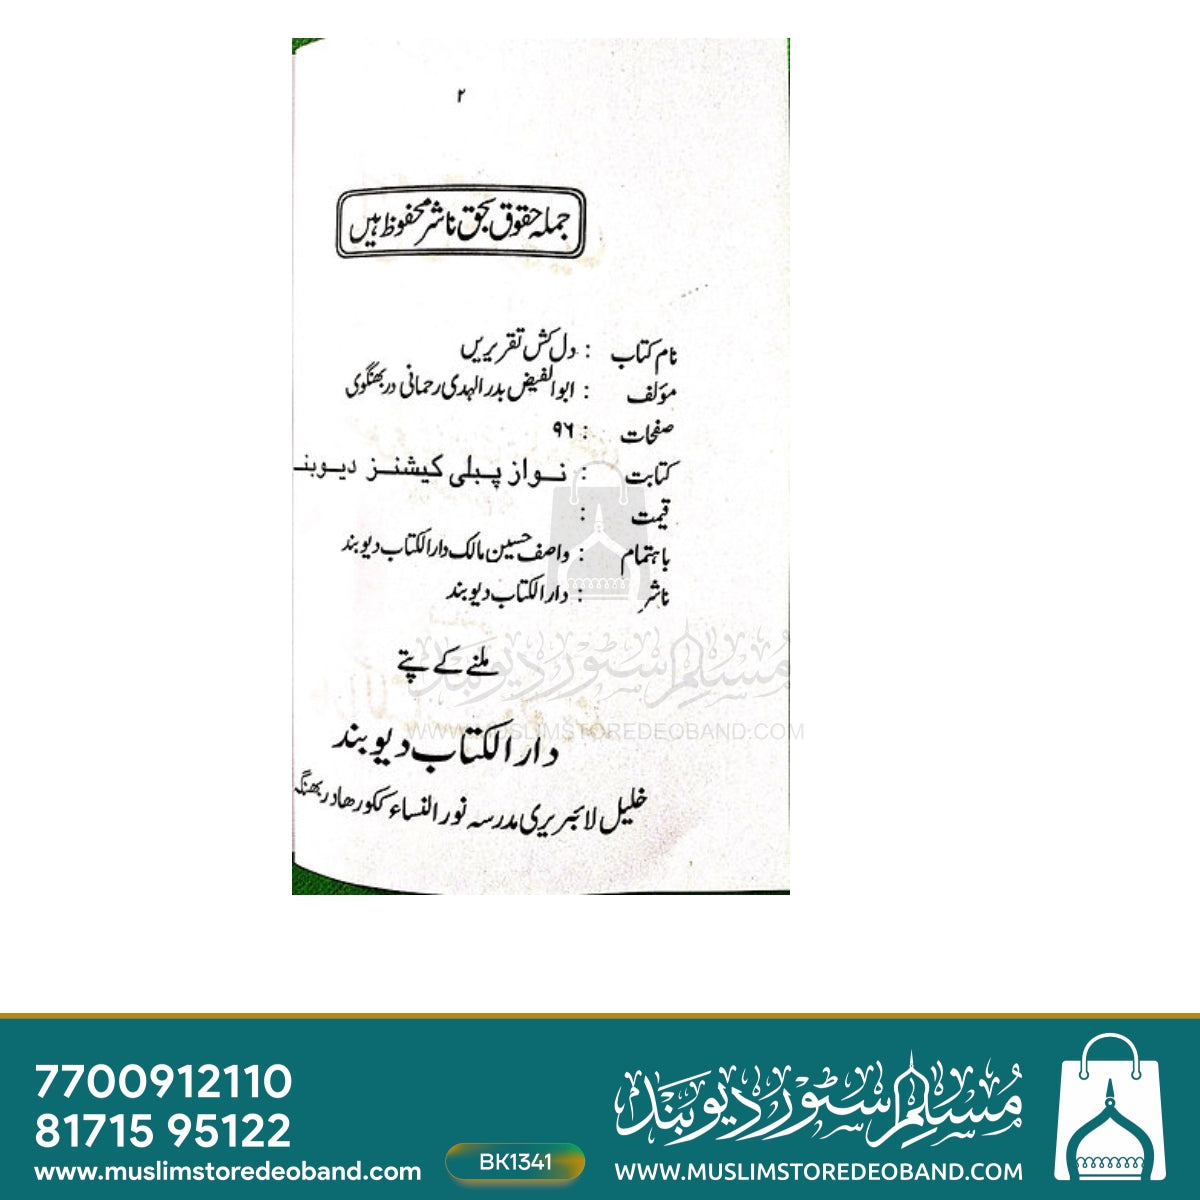 ۲
جملہ حقوق بحق ناشر محفوظ ہیں
نام کتاب : دل کش تقریریں
مؤلف : ابوالفیض بدرالہدی رحمانی دربھنگوی
صفحات : ۹۶
کتابت : نواز پبلی کیشنز دیوبنـ
قیمت :
باہتمام : واصف حسین مالک دارالکتاب دیوبند
ناشر : دارالکتاب دیوبند
ملنے کے پتے
دارالکتاب دیوبند
خلیل لائبریری مدرسہ نورالنساء ککورھا دربھنگہ
مسلم سٹور دیوبند
WWW.MUSLIMSTOREDEOBAND.COM
7700912110
81715 95122
www.muslimstoredeoband.com
BK1341
مسلم سٹور دیوبند
WWW.MUSLIMSTOREDEOBAND.COM